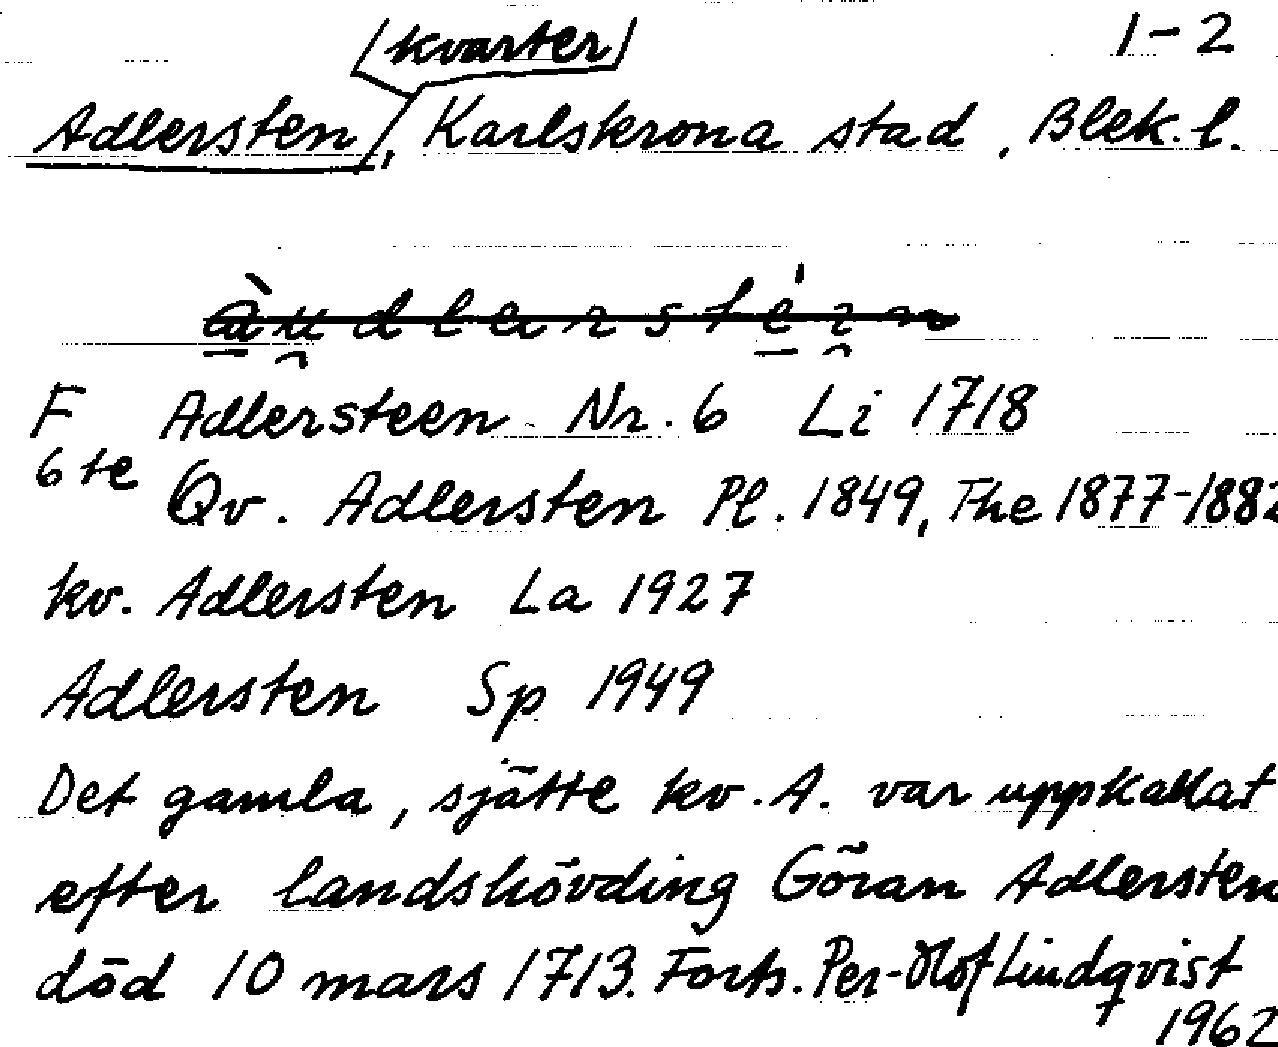 (kvarter) 1-2
Adlersten, Karlskrona stad, Blek. l.
F Adlersteen Nr. 6 Li 1718
6te Qv. Adlersten Pl. 1849, The 1877-1882
kv. Adlersten La 1927
Adlersten Sp 1949
Det gamla, sjätte kv. A. var uppkallat
efter landshövding Göran Adlersten
död 10 mars 1713. Forts. Per-Olof Lindqvist
1962